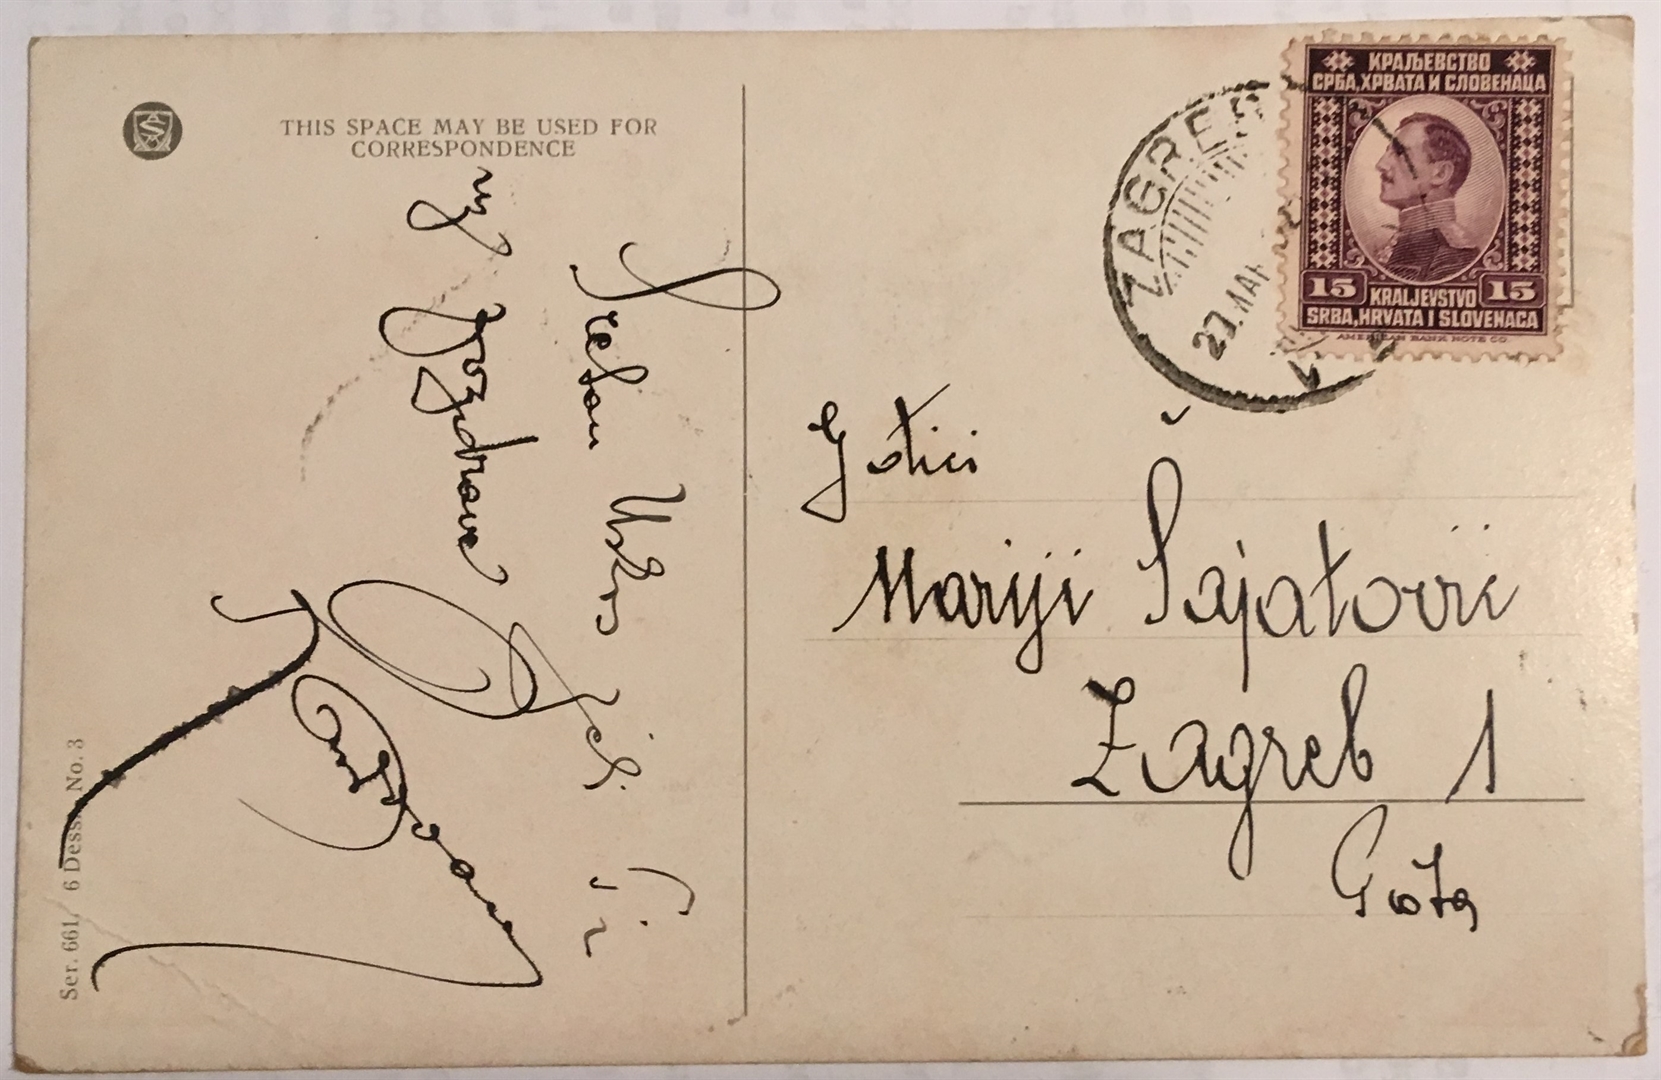 THIS SPACE MAY BE USED FOR
CORRESPONDENCE
Sretan Uskrs želi Ti
uz pozdrave
Ser. 661. 6 Dess. No. 3
ZAGREB
КРАЉЕВСТВО
СРБА, ХРВАТА И СЛОВЕНАЦА
15 KRALJEVSTVO 15
SRBA, HRVATA I SLOVENACA
AMERICAN BANK NOTE CO.
Gđici
Mariji Šajatović
Zagreb 1